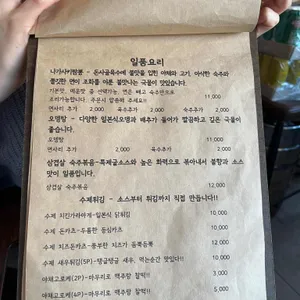 일품요리
나가사키짬뽕 - 돈사골육수에 불맛을 입힌 야채와 고기, 아삭한 숙주와
쫄깃한 면이 조화를 이룬 불맛나는 국물이 맛있습니다.
기본맛, 매운맛 중 선택가능, 면은 빼고 숙주만으로
조리가능합니다. 주문시 말씀해 주세요!! 11,000
면사리 추가 2,000 육수추가 2,000 숙주추가 2,000
오뎅탕 - 다양한 일본식오뎅과 배추가 들어가 깔끔하고 깊은 국물이
좋습니다.
오뎅탕 11,000
면사리 추가 2,000 오뎅추가 2,000
삼겹살 숙주볶음-특제굴소스와 높은 화력으로 볶아내서 불향과 소스
맛이 일품입니다.
삼겹살 숙주볶음 12,000
수제튀김 - 소스부터 튀김까지 직접 만듭니다!!
수제 치킨가라아게-일본식 닭튀김 10,000
수제 돈까스-두툼한 등심카츠 10,000
수제 치즈돈까스-풍부한 치즈가 듬뿍듬뿍 12,000
수제 새우튀김(5P)-탱글탱글 새우, 먹는순간 맛있다!! 10,000
야채고로케(2P)-마무리로 맥주랑 찰떡!! 3,000
야채고로케(4P)-마무리로 맥주랑 찰떡!! 5,000